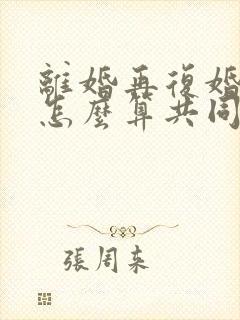 離婚再復婚
怎麼算共同
張周来